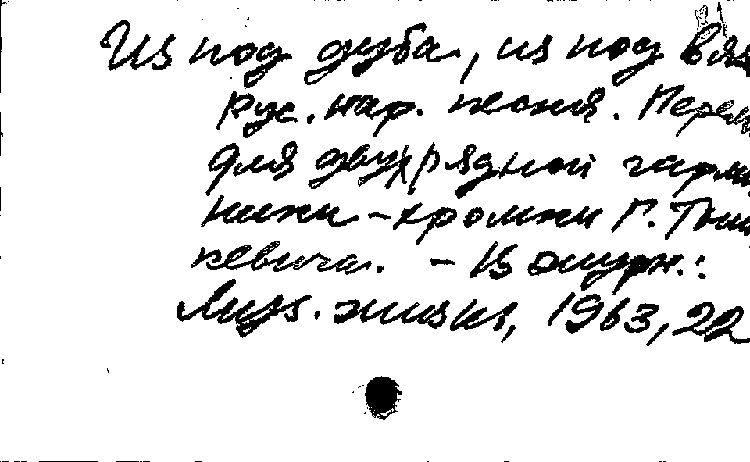 Из под дуба, из под вяз
Рус. нар. песня. Перел
для двухрядной гармо
ники-хромки Г. Тыш
кевича. – В журн.:
Муз. жизнь, 1963, 22